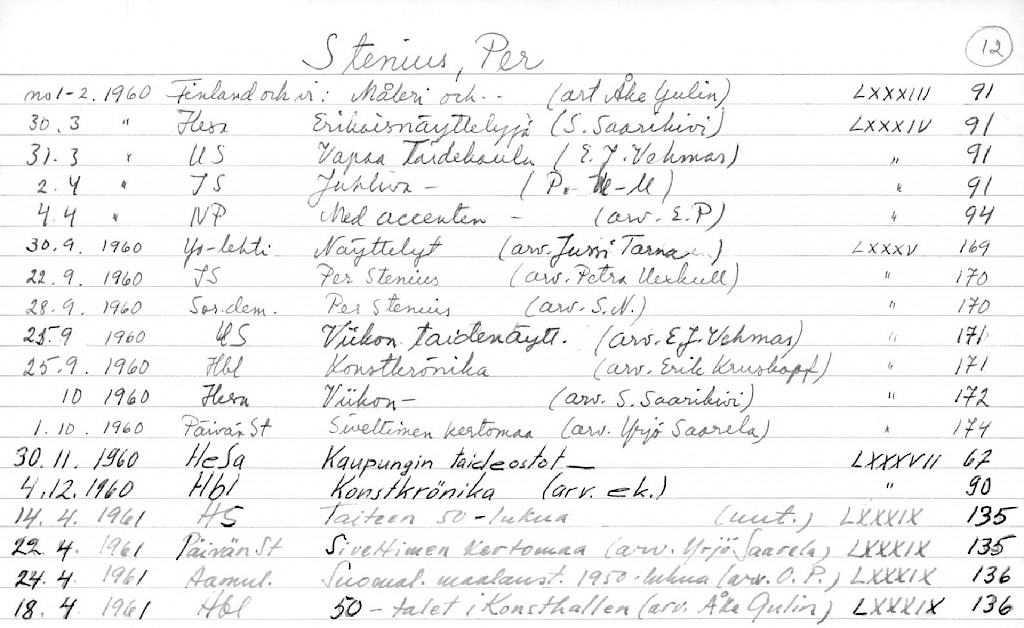 12
Stenius, Per
no 1-2. 1960 Finland och vi: Måleri och - - (art Åke Gulin) LXXXIII 91
30.3 " Hesa Erikoisnäyttelyjä (S. Saarikivi) LXXXIV 91
31.3 " US Vapaa Taidekoulu (E.J. Vehmas) " 91
2.4 " IS Juhliva - (P. U-U) " 91
4.4 " NP Med accenten - (arv. E.P) " 94
30.9. 1960 Yo-lehti Näyttelyt (arv. Jussi Tarna) LXXXV 169
22.9. 1960 IS Per Stenius (arv. Petra Uexkull) " 170
28.9. 1960 Sos.dem. Per Stenius (arv. S.N.) " 170
25.9 1960 US Viikon taidenäytt. (arv. E.J. Vehmas) " 171
25.9. 1960 Hbl Konstkrönika (arv. Erik Kruskopf) " 171
10 1960 Hesa Viikon - (arv. S. Saarikivi) " 172
1.10. 1960 Päivän St Siveltimen kertomaa (arv. Yrjö Saarela) " 174
30.11. 1960 HeSa Kaupungin taideostot — LXXXVII 67
4.12. 1960 Hbl Konstkrönika (arv. ek.) " 90
14.4. 1961 HS Taiteen 50-lukua (uut.) LXXXIX 135
22.4. 1961 Päivän St Siveltimen kertomaa (arv. Yrjö Saarela) LXXXIX 135
24.4 1961 Aamul. Suomal. maalaust. 1950-lukua (arv. O.P.) LXXXIX 136
18.4 1961 Hbl 50-talet i Konsthallen (arv. Åke Gulin) LXXXIX 136